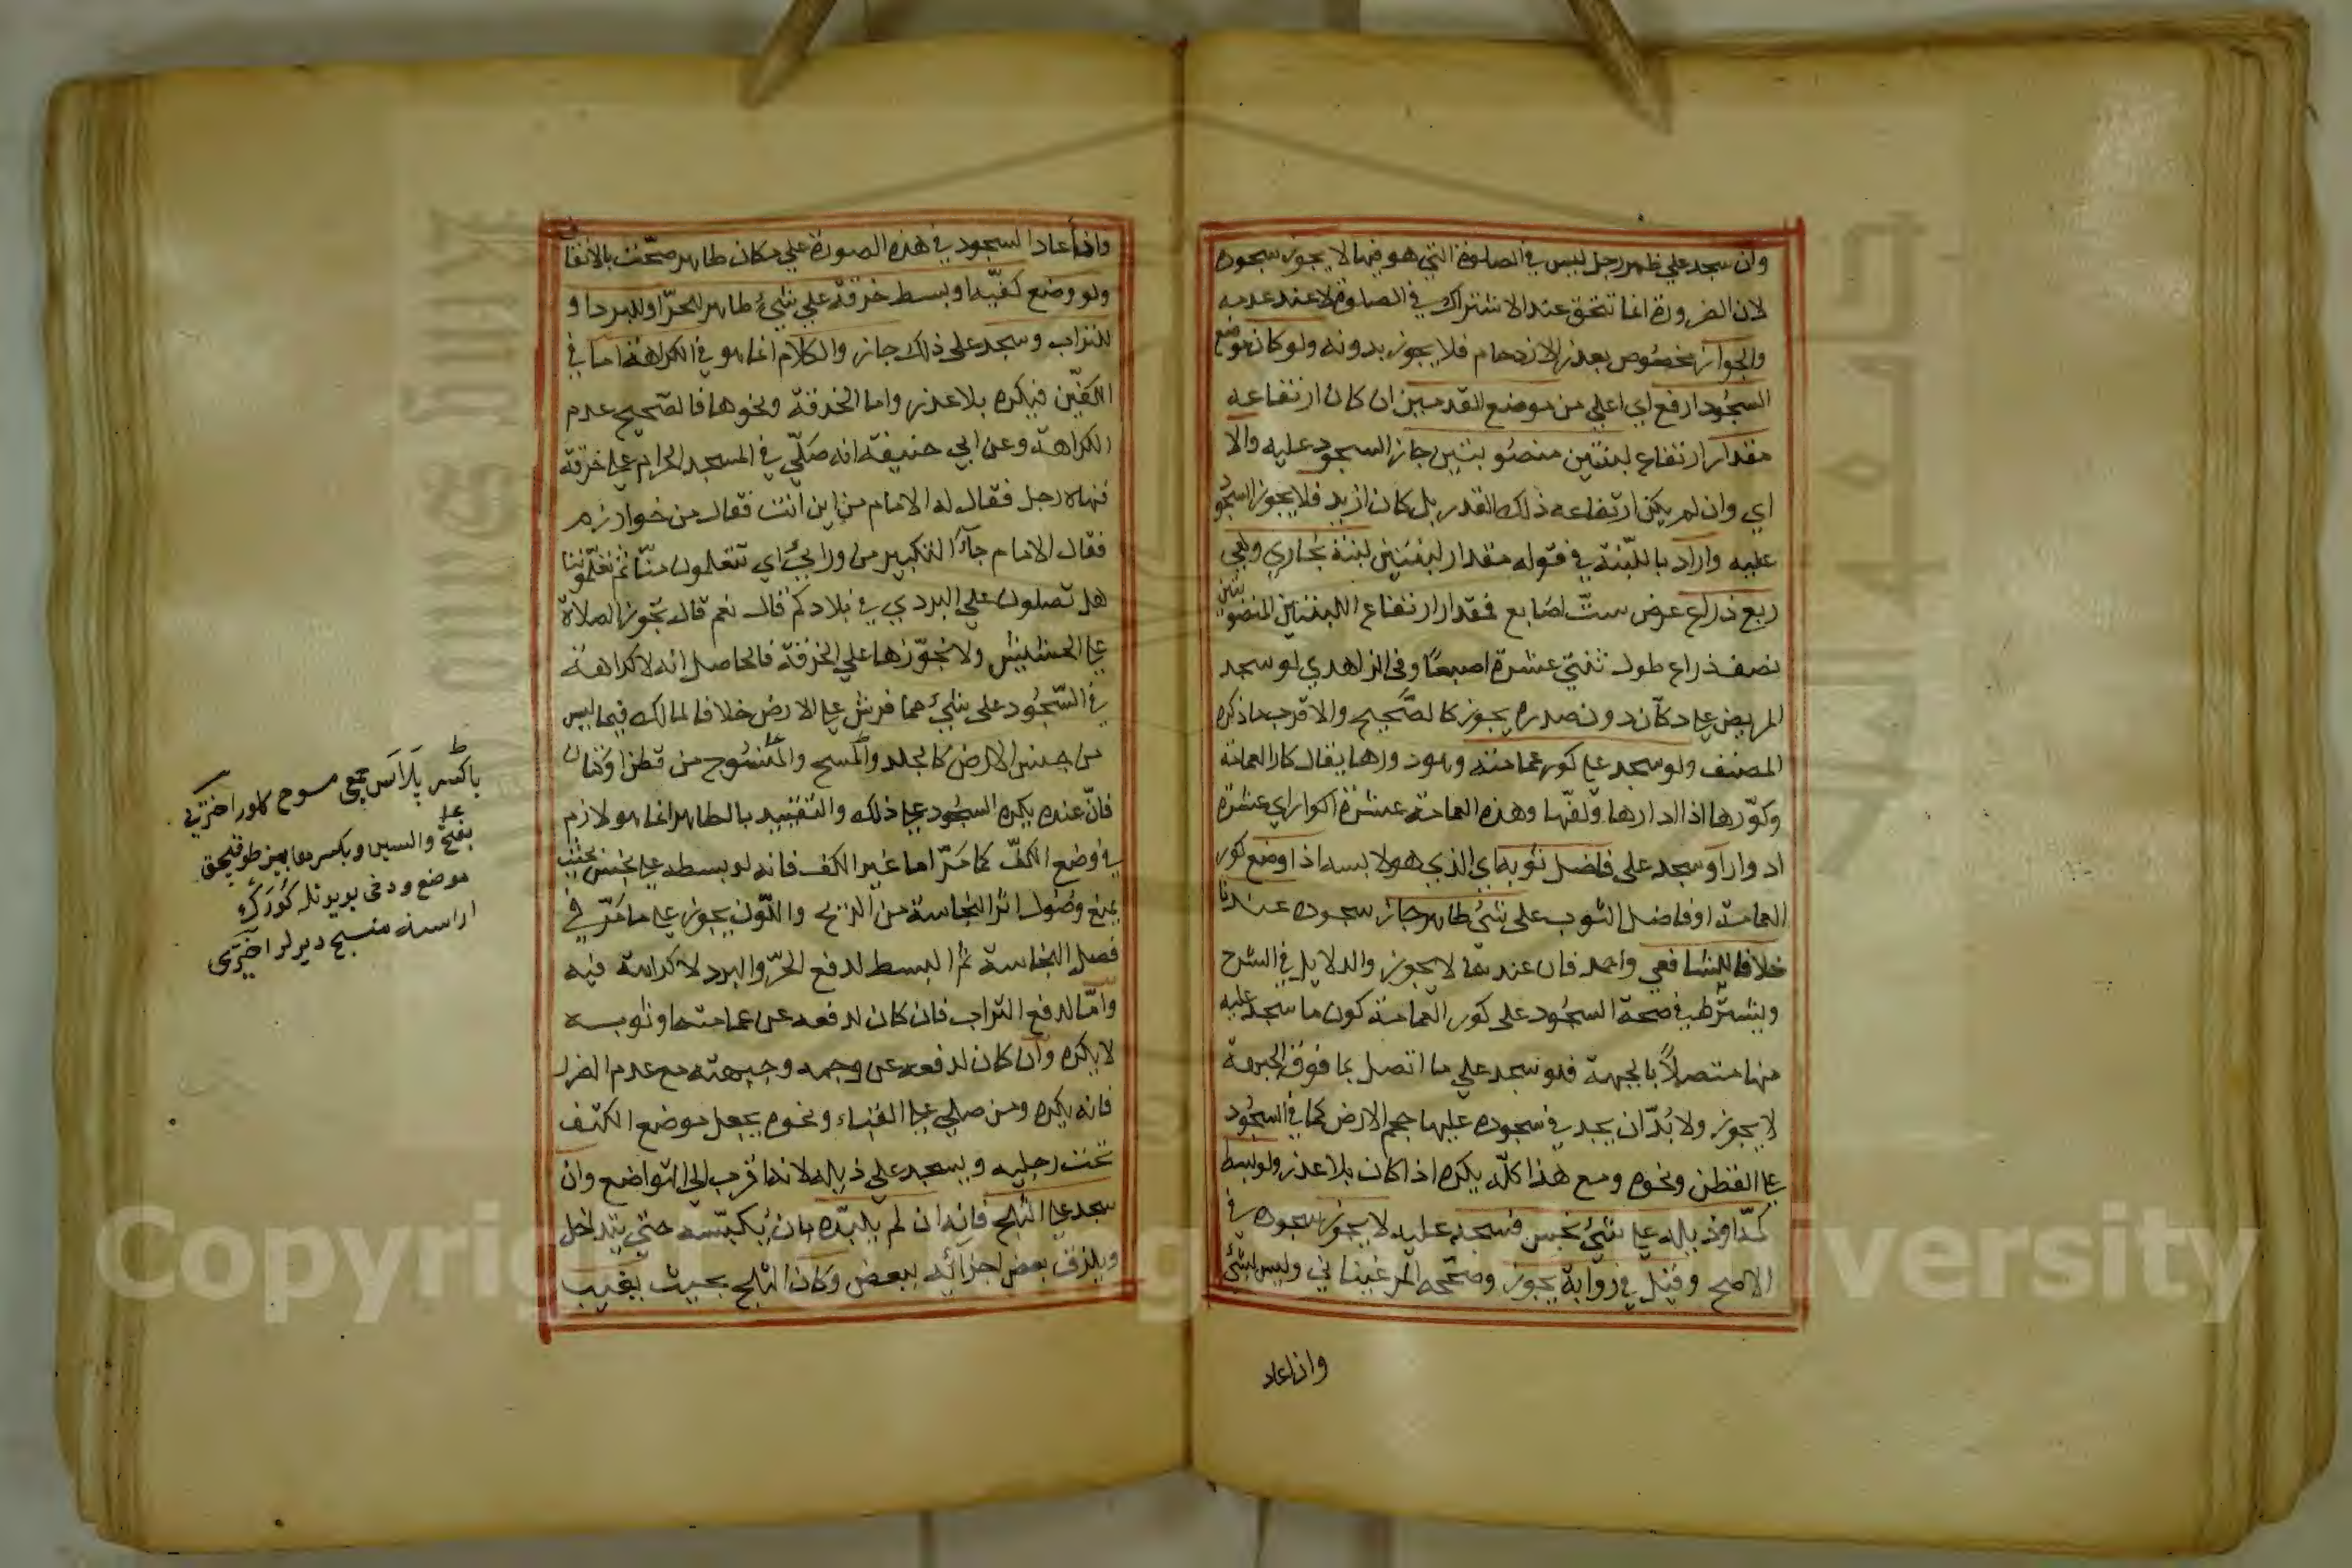 وان سجد علي ظهر رجل ليس في الصلوة التي هو فيها لا يجوز سجوده
لان الضرورة انما تتحقق عند الاشتراك في الصلوة لا عند عدمه
والجواز مخصوص بعذر الازدحام فلا يجوز بدونه ولو كان موضع
السجود ارفع اي اعلي من موضع القدمين ان كان ارتفاعه
مقدار ارتفاع لبنتين منصوبتين جاز السجود عليه والا
اي وان لم يكن ارتفاعه ذلك القدر بل كان ازيد فلا يجوز السجود
عليه واراد باللبنة في قوله مقدار لبنتين لبنة بخاري وهي
ربع ذراع عرض ست اصابع فمقدار ارتفاع اللبنتين المنصوبتين
نصف ذراع طول ثنتي عشرة اصبعا وفي الزاهدي لو سجد
المريض علي دكان دون صدره يجوز كالصحيح والاقرب ما ذكره
المصنف ولو سجد علي كور عمامته وهو دورها يقال كار العمامة
وكورها اذا ادارها ولفها وهذه العمامة عشرة اكوار اي عشرة
ادوار او سجد على فاضل ثوبه اي الذي هو لابسه اذا وضع كور
العمامة او فاضل الثوب على شئ طاهر جاز سجوده عندنا
خلافا للشافعي واحمد فان عندهما لا يجوز والدلايل في الشرح
ويشترط في صحة السجود على كور العمامة كون ما سجد عليه
منها متصلا بالجبهة فلو سجد علي ما اتصل بما فوق الجبهة
لا يجوز ولا بد ان يجد في سجوده عليها حجم الارض كما في السجود
علي القطن ونحوه ومع هذا كله يكره اذا كان بلا عذر ولو بسط
كمه او ذيله علي شئ نجس فسجد عليه لا يجوز سجوده في
الاصح وقيل في رواية يجوز وصححه المرغيناني وليس بشئ
واذا عاد
واذا عاد السجود في هذه الصورة علي مكان طاهر صحت بالاتفاق
ولو وضع كفيه او بسط خرقة علي شئ طاهر للحر او للبرد او
للتراب وسجد على ذلك جاز والكلام انما هو في الكراهة اما في
الكفين فيكره بلا عذر واما الخرقة ونحوها فالصحيح عدم
الكراهة وعن ابي حنيفة انه صلي في المسجد الحرام علي خرقة
فنهاه رجل فقال له الامام من اين انت فقال من خوارزم
فقال الامام جاء التكبير من ورائي اي تتعلمون منا ثم تعلموننا
هل تصلون علي البردي في بلادكم قال نعم قال تجوز الصلاة
علي الحشيش ولا تجوزها علي الخرقة فالحاصل انه لا كراهة
في السجود على شئ مما فرش علي الارض خلافا لمالك فيما ليس
من جنس الارض كالجلد والمسح والمنسوج من قطن او كتان
فان عنده يكره السجود علي ذلك والتقييد بالطاهر انما هو لازم
في وضع الكف كما مر اما غير الكف فانه لو بسطه علي نجس بحيث
يمنع وصول اثر النجاسة من الريح واللون يجوز علي ما مر في
فصل النجاسة ثم البسط لدفع الحر والبرد لا كراهة فيه
واما لدفع التراب فان كان لدفعه عن عمامته او ثوبه
لا يكره وان كان لدفعه عن وجهه وجبهته مع عدم الضرر
فانه يكره ومن صلي علي القباء ونحوه يجعل موضع الكتف
تحت رجليه ويسجد علي ذيله لانه اقرب الي التواضع وان
سجد علي الثلج فانه ان لم يلبده بان يكبسه حتى يتداخل
ويلزق بعض اجزائه ببعض وكان الثلج بحيث يغيب
باكسر پلاس جمعي مسوح كلور اختري